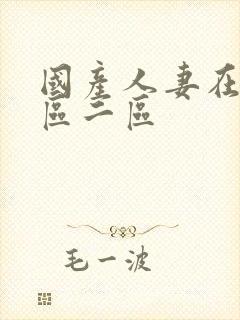 國産人妻在
區二區
毛一波